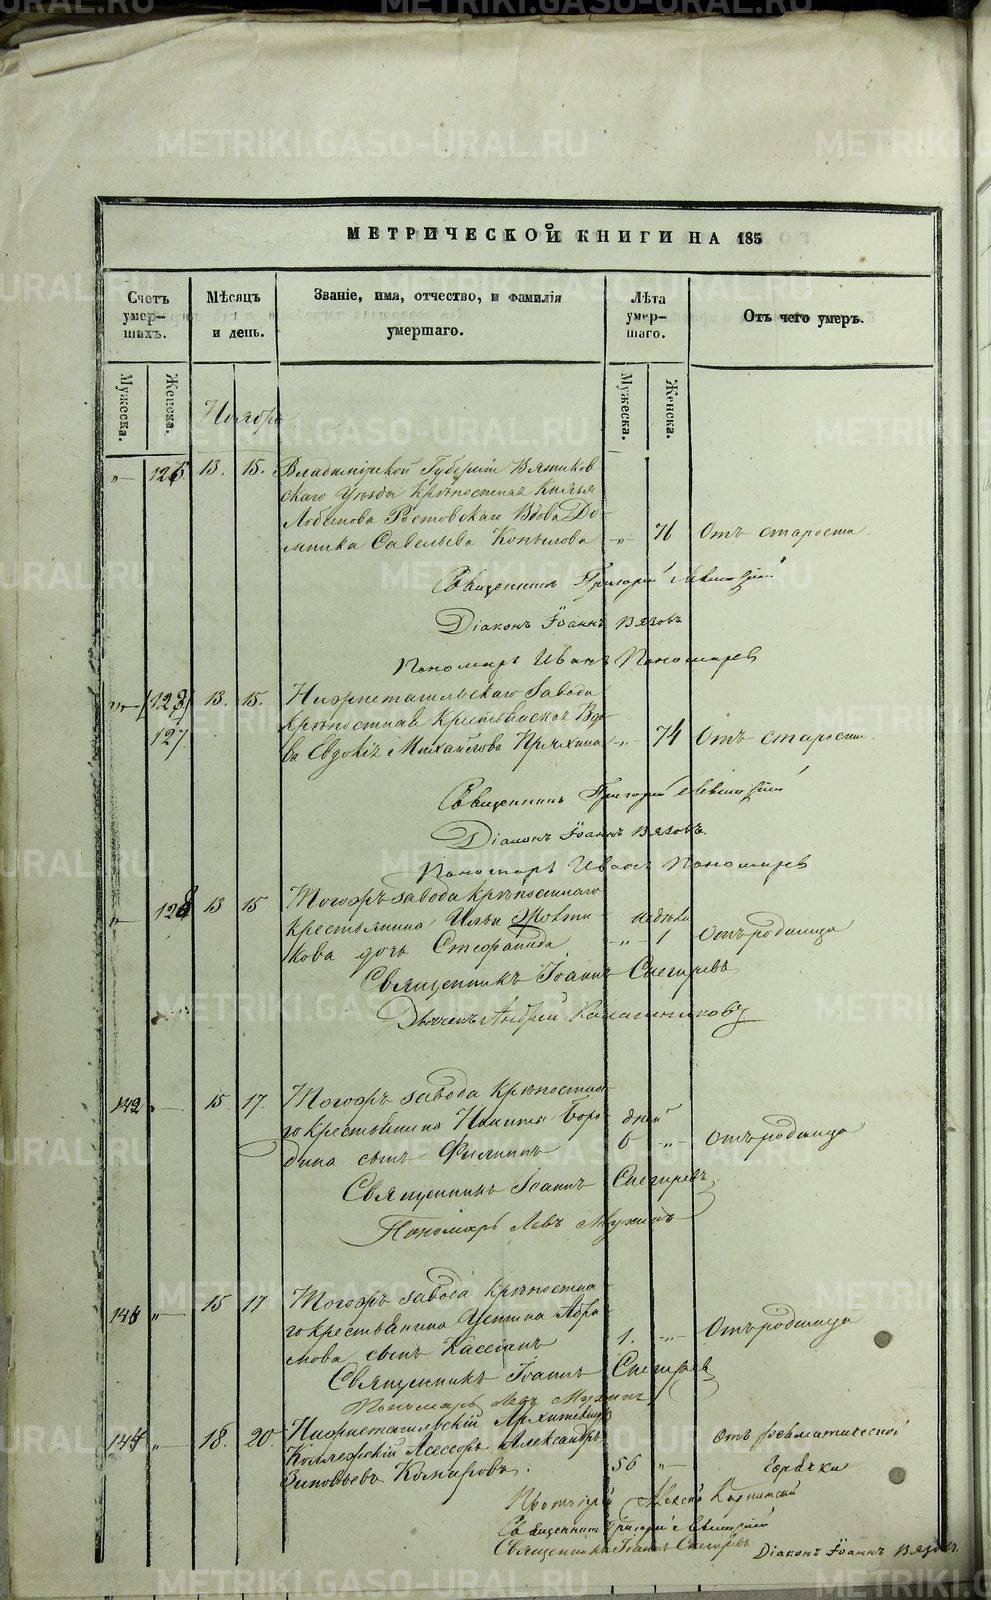 МЕТРИЧЕСКОЙ КНИГИ НА 185
Счетъ умер-шихъ.
Мѣсяцъ и день.
Званіе, имя, отчество, и фамилія умершаго.
Лѣта умер-шаго.
Отъ чего умеръ.
Мужеска.
Женска.
Мужеска.
Женска.
Ноябрь
„ 126 13. 15. Владимірской Губерніи Вязников
скаго Уѣзда Крѣпостная Князя
Лобанова Ростовскаго Вдова До-
мника Савельева Копылова „ 76 Отъ старости.
Священникъ Григорій
Діаконъ Іоаннъ Вязовъ
Пономарь Иванъ Пономаревъ
„ 127 13. 15. Нижнетагильскаго завода
крѣпостная крестьянская Вдо-
ва Евдокія Михайлова Пряхина „ 74 Отъ старости.
Священникъ Григорій
Діаконъ Іоаннъ Вязовъ.
Пономарь Иванъ Пономаревъ
„ 128 13 15 Тогожъ завода крѣпостнаго
крестьянина Ильи недѣли
кова дочь Стефанида „ 1 Отъ родимца
Священникъ Іоаннъ Снегиревъ
Андрей
142 „ 15. 17. Тогожъ завода крѣпостна-
го крестьянина Никиты Боро- дней
дина сынъ Филиппъ 6 „ Отъ родимца
Священникъ Іоаннъ Снегиревъ
Пономарь Левъ Мухинъ
„ 15 17 Тогожъ завода крѣпостна-
го крестьянина Устина Абра-
мова сынъ Кассіанъ 1. „ Отъ родимца
Священникъ Іоаннъ Снегиревъ
Пономарь Левъ Мухинъ
144 „ 18. 20. Нижнетагильскій Архитекторъ
Коллежскій Асессоръ Александръ Отъ ревматической
Зиновьевъ Комаровъ. 56 „ горячки
Протоіерей
Священникъ Григорій
Священникъ Іоаннъ Снегиревъ Діаконъ Іоаннъ Вязовъ.
METRIKI.GASO-URAL.RU